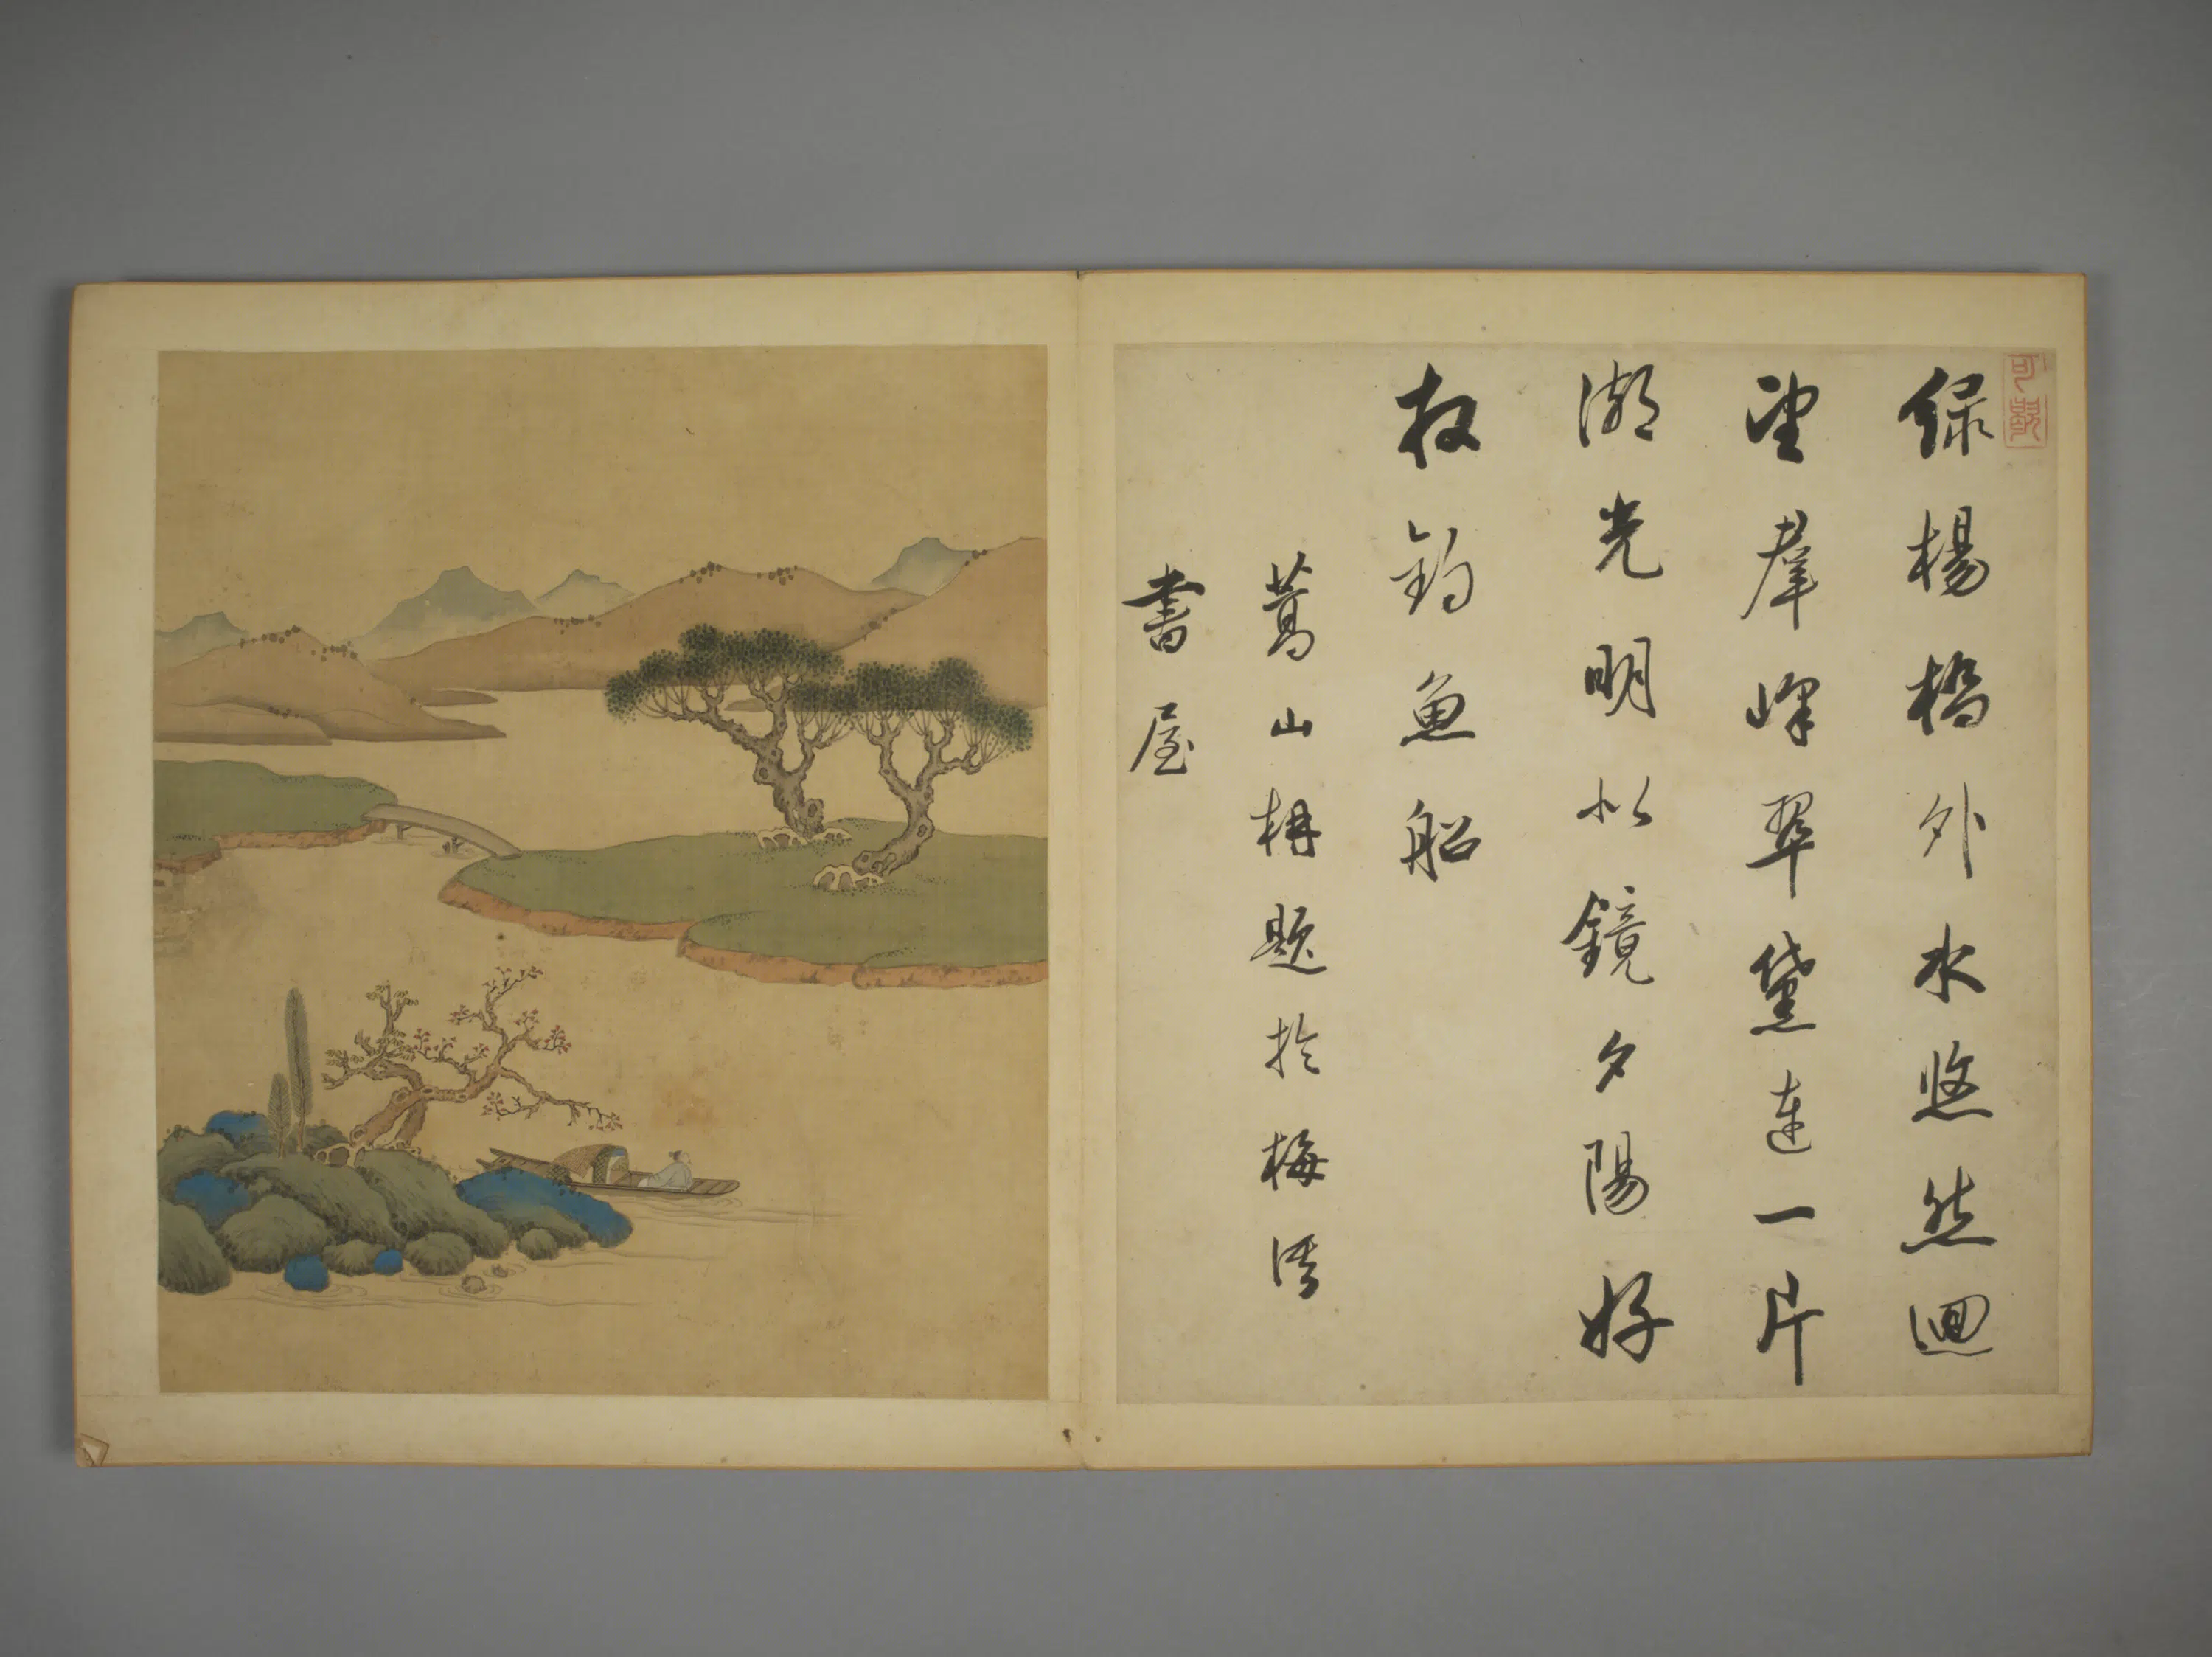 綠楊橋外水悠然迴
望羣峰翠黛連一片
湖光明似鏡夕陽好
放釣魚船
葛山題於梅
書屋